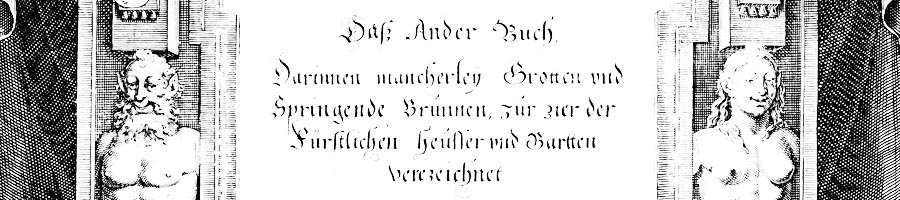 Daß Ander Buch.
Darinnen mancherley Grotten vnd
Springende Brunnen, zur zier der
Fürstlichen heüsser vnd Gartten
verezeichnet